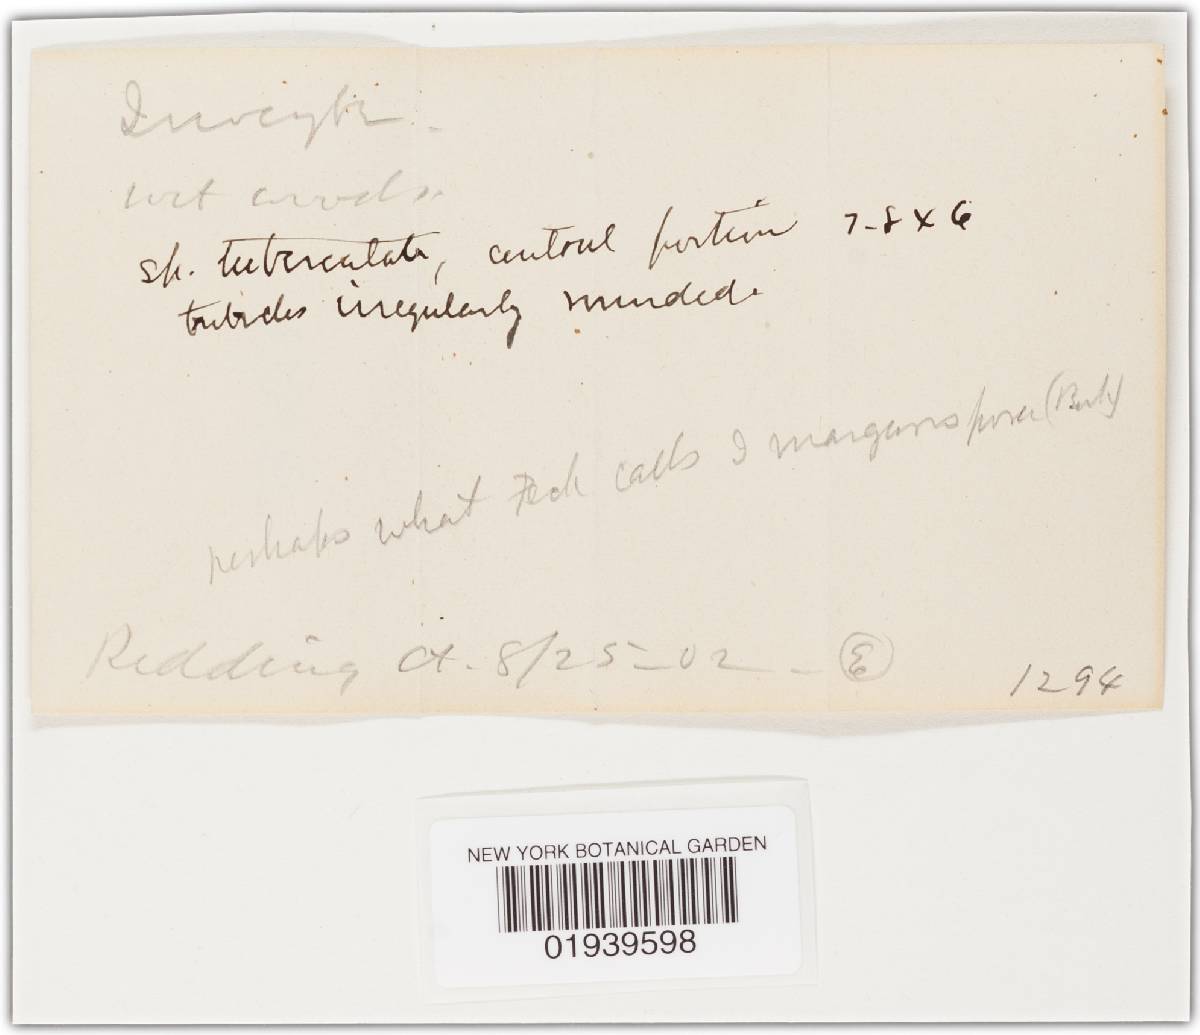 Inocybe.
wet woods.
sp. tuberculate, central portion 7-8 x 6
tubercles irregularly rounded.
perhaps what Peck calls I margarispora (Berk)
Redding Ct. 8/25-02- E
1294
NEW YORK BOTANICAL GARDEN
01939598